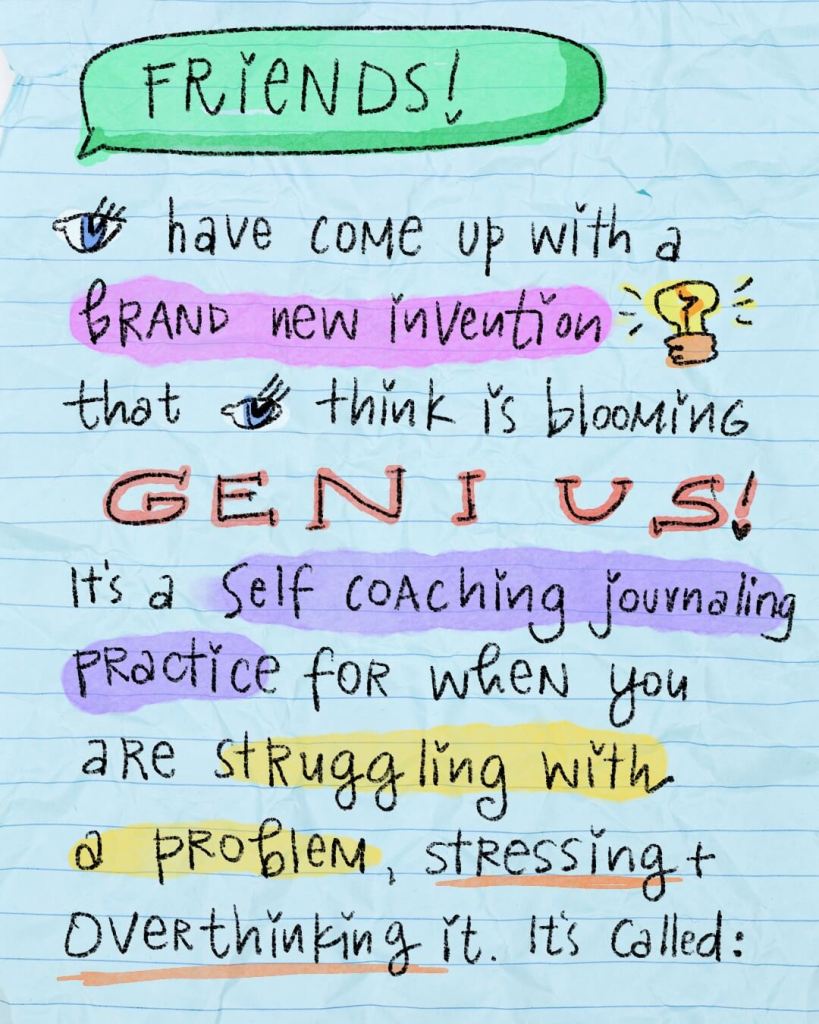 FRIENDS!
have come up with a
BRAND new invention
that think is blooming
GENIUS!
It's a Self coaching journaling
practice for when you
are struggling with
a problem, stressing +
overthinking it. It's called: